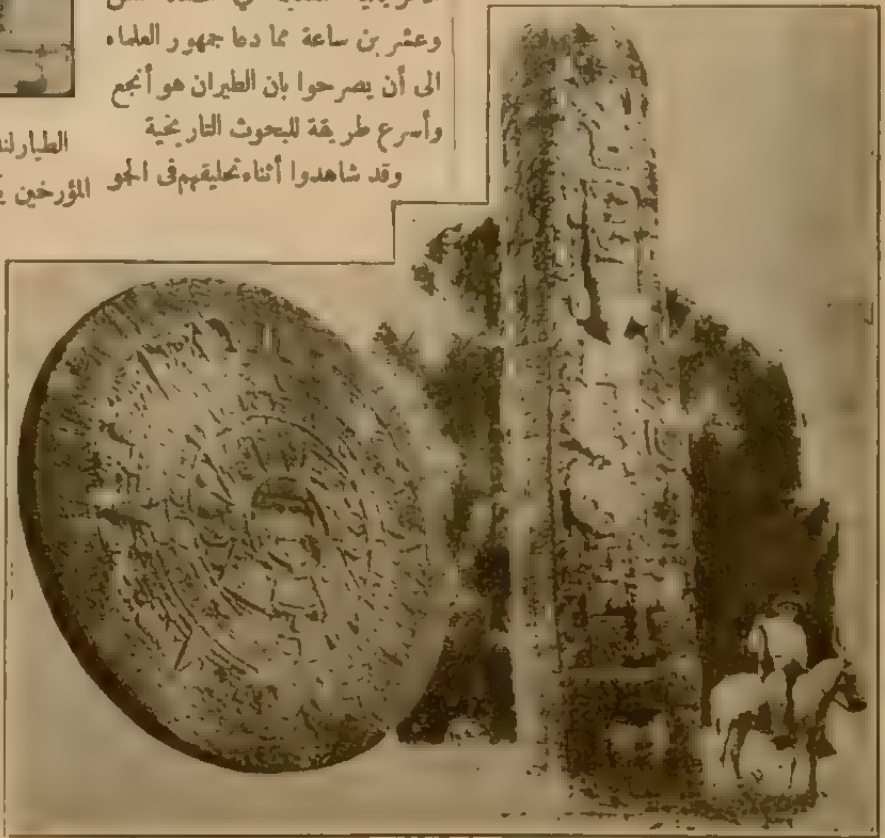 وعشرين ساعة مما دعا جمهور العلماء
الى أن يصرحوا بان الطيران هو أنجع
وأسرع طريقة للبحوث التاريخية
وقد شاهدوا أثناء تحليقهم فى الجو
المؤرخين